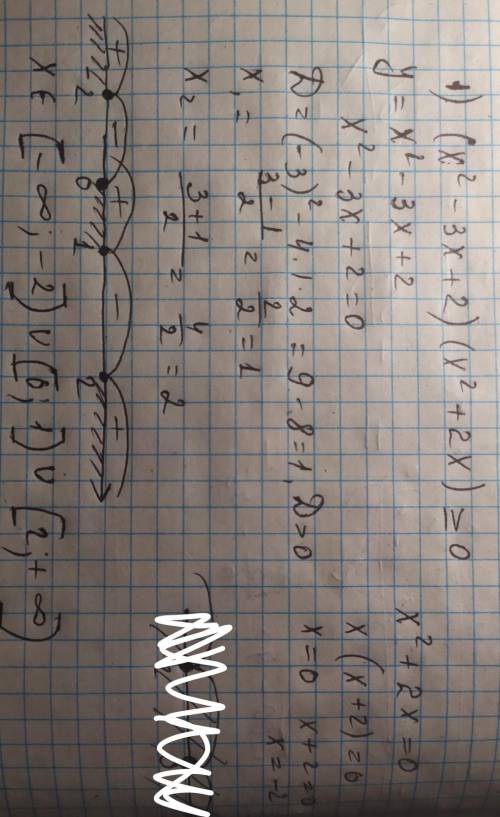 1) (x² - 3x + 2) (x² + 2x) ≥ 0
y = x² - 3x + 2
x² - 3x + 2 = 0
D = (-3)² - 4·1·2 = 9 - 8 = 1, D > 0
x₁ = \frac{3-1}{2} = \frac{2}{2} = 1
x₂ = \frac{3+1}{2} = \frac{4}{2} = 2
x² + 2x = 0
x (x + 2) = 0
x = 0 x + 2 = 0
x = -2
+ - + - +
-2 0 1 2
x ∈ [-∞; -2] ∪ [0; 1] ∪ [2; +∞)